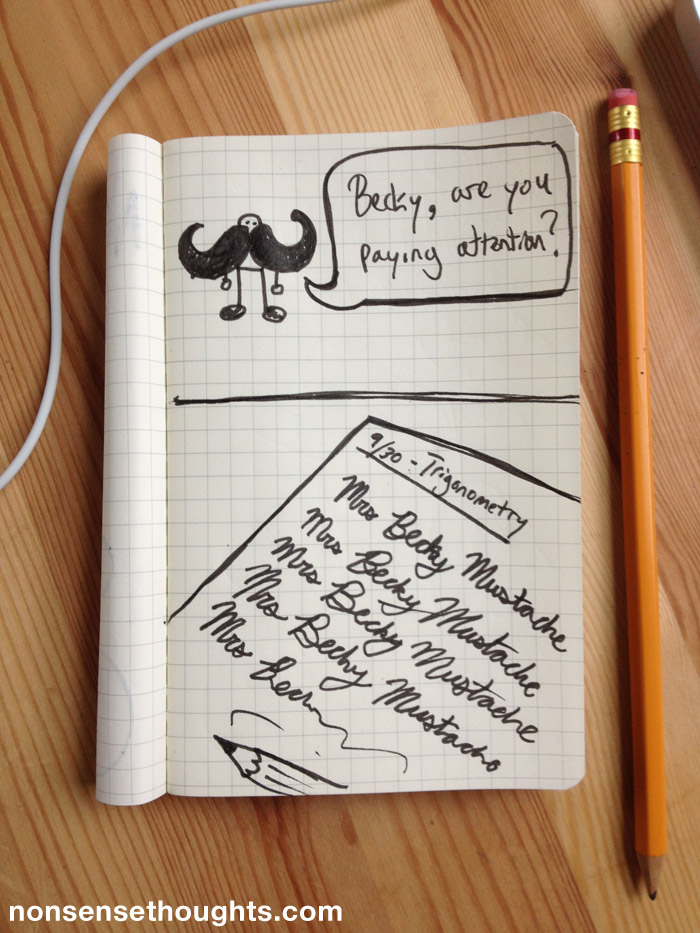 Becky, are you
paying attention?
9/30 - Trigonometry
Mrs Becky Mustache
Mrs Becky Mustache
Mrs Becky Mustache
Mrs Becky Mustache
Mrs Beck
nonsensethoughts.com